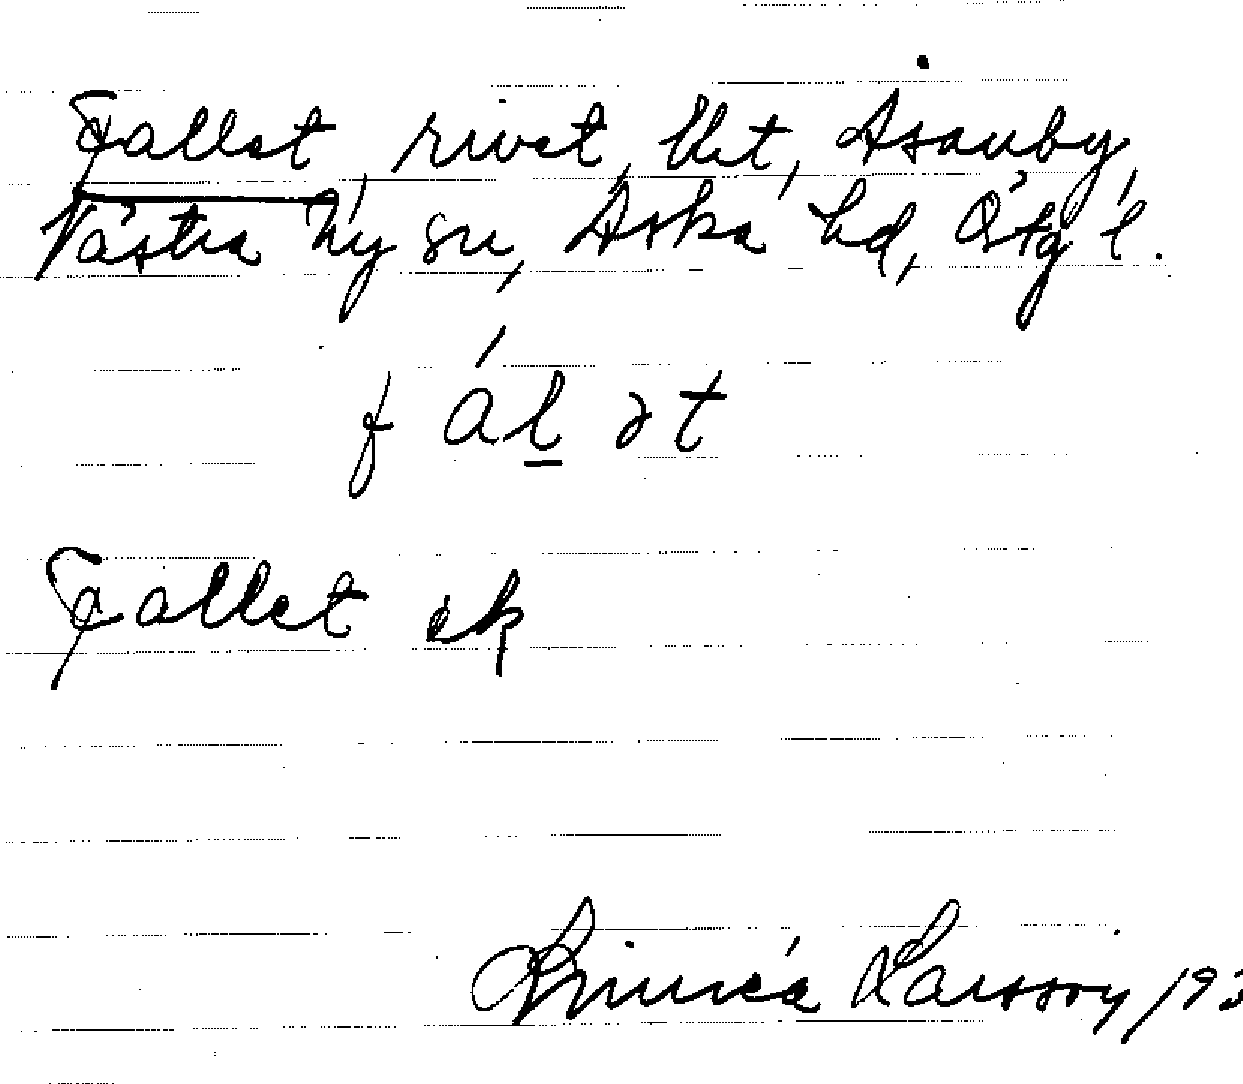 Fallet rivet, tht, Åsanby,
Västra Ny sn, Aska hd, Östg l.
f á l ə t
Fallet ek
Linnéa Larsson 193